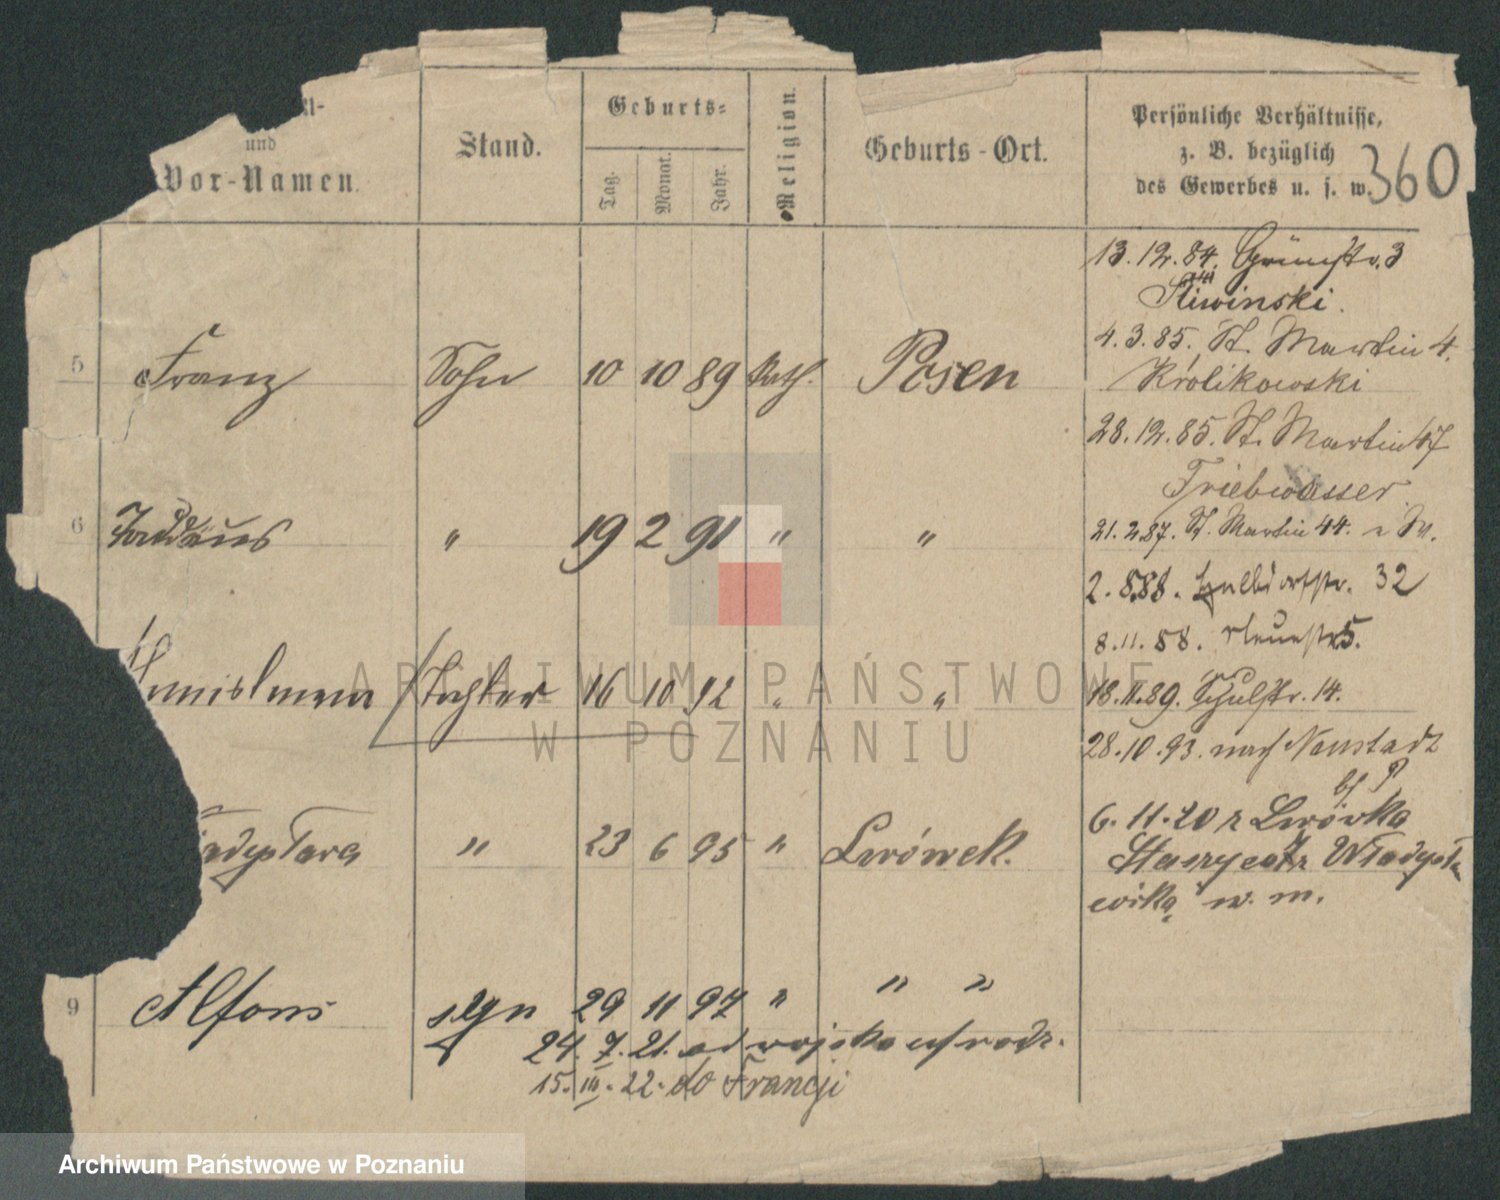 und
Vor-Namen.
Stand.
Geburts-
Tag.
Monat.
Jahr.
Religion.
Geburts-Ort.
Persönliche Verhältnisse,
z. B. bezüglich
des Gewerbes u. s. w.
360
13.12.84. Grünstr. 3
Śliwinski.
4.3.85. St. Martin 4.
Krolikowski
5 Franz Sohn 10 10 89 kath. Posen
28.12.85. St. Martin 47
Triebwasser.
6 Taddäus " 19 2 91 " "
21.2.87. St. Martin 44.
2.8.88. Halbdorfstr. 32
8.11.88. Neuestr. 5.
Tochter 16 10 92 " "
18.11.89. Schulstr. 14.
28.10.93. nach Neustadt
bf
6.11.20 z Lwówka
" 23 6 95 " Lwówek.
w. m.
9 Alfons syn 29 11 97 " " "
24.7.21. od wojska
15.III.22. do Francji
ARCHIWUM PAŃSTWOWE
W POZNANIU
Archiwum Państwowe w Poznaniu